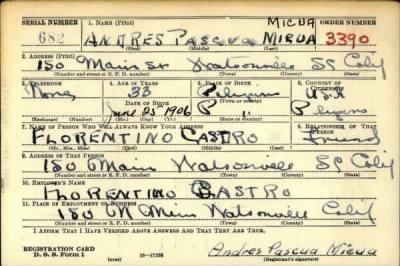 SERIAL NUMBER 1. NAME (Print) MICUA ORDER NUMBER
682 ANDRES PASCUA MICUA 3390
(First) (Middle) (Last)
2. ADDRESS (Print)
150 Main St Watsonville Calif
(Number and street or R. F. D. number) (Town) (County) (State)
3. TELEPHONE 4. AGE IN YEARS 5. PLACE OF BIRTH 6. COUNTRY OF CITIZENSHIP
None 33
DATE OF BIRTH (Town or county)
June 25 1906 P. I.
(Exchange) (Number) (Mo.) (Day) (Yr.) (State or country)
7. NAME OF PERSON WHO WILL ALWAYS KNOW YOUR ADDRESS 8. RELATIONSHIP OF THAT PERSON
FLORENTINO CASTRO Friend
(Mr., Mrs., Miss) (First) (Middle) (Last)
9. ADDRESS OF THAT PERSON
150 Main Watsonville Calif
(Number and street or R. F. D. number) (Town) (County) (State)
10. EMPLOYER'S NAME
FLORENTINO CASTRO
11. PLACE OF EMPLOYMENT OR BUSINESS
150 Main Watsonville Calif
(Number and street or R. F. D. number) (Town) (County) (State)
I AFFIRM THAT I HAVE VERIFIED ABOVE ANSWERS AND THAT THEY ARE TRUE.
REGISTRATION CARD
D. S. S. Form 1 (over) Andres Pascua Micua
(Registrant's signature)